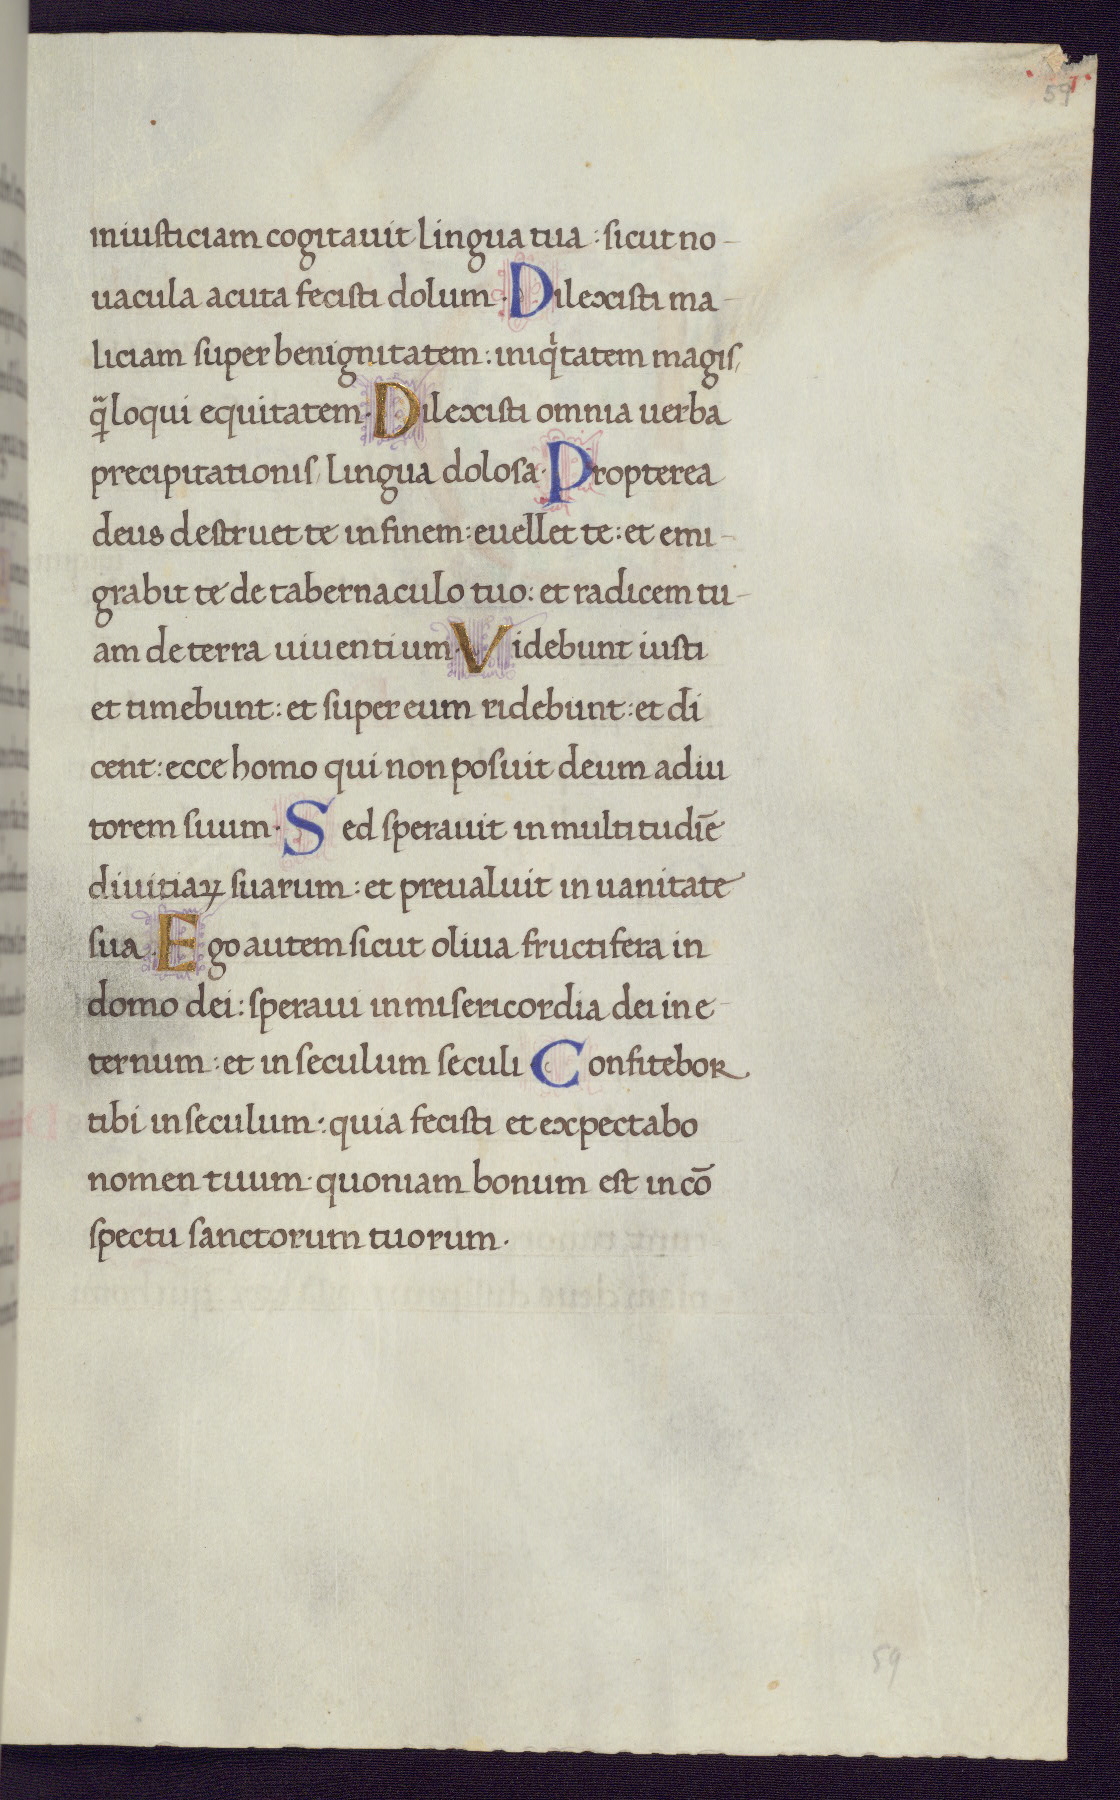 59
iniusticiam cogitauit lingua tua : sicut no-
uacula acuta fecisti dolum · Dilexisti ma-
liciam super benignitatem : iniqͥtatem magis,
q̃ loqui equitatem · Dilexisti omnia uerba
precipitationis, lingua dolosa · Propterea
deus destruet te in finem : euellet te : et emi-
grabit te de tabernaculo tuo : et radicem tu-
am de terra uiuentium · Videbunt iusti
et timebunt : et super eum ridebunt : et di
cent : ecce homo qui non posuit deum adiu
torem suum · Sed sperauit in multitudīe
diuitiaꝝ suarum : et preualuit in uanitate
sua · Ego autem sicut oliua fructifera in
domo dei : speraui in misericordia dei in e-
ternum : et in seculum seculi Confitebor
tibi in seculum : quia fecisti et expectabo
nomen tuum · quoniam bonum est in cō
spectu sanctorum tuorum ·
59